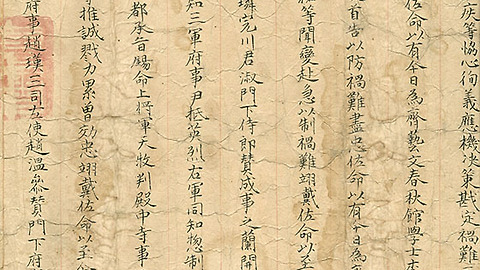 等恊心徇義應機决策戡定禍難
佐命以有今日為齊藝文春秋館學士李
首告以防禍難盡忠佐命以有今日為
等聞變赴急以制禍難翊戴佐命以至
璘完川君淑門下侍郎賛成事之蘭開
知三軍府事尹抵苫烈右軍同知摠制
都承旨錫命上將軍天牧判殿中寺事
等推誠戮力累曽効忠翊戴佐命以至
府事趙璞三司左使趙溫叅賛門下府